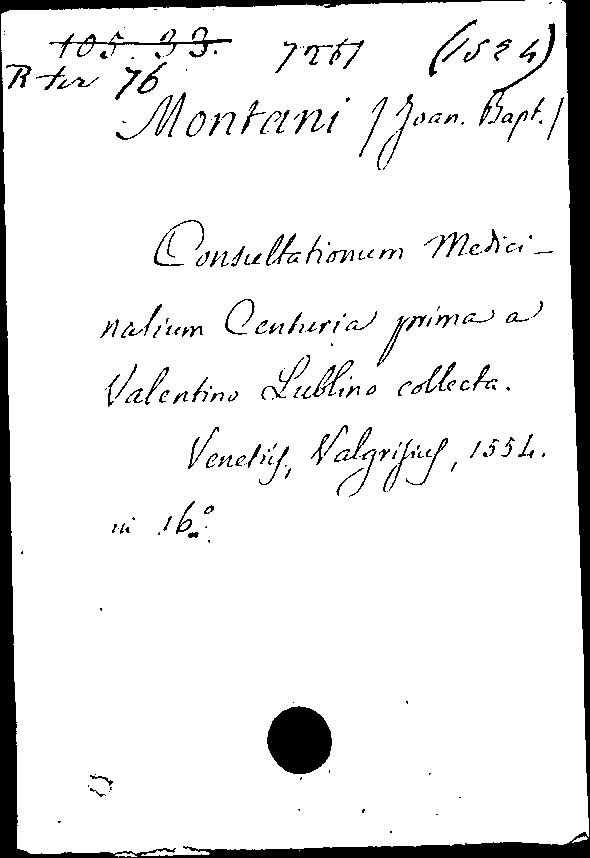 105. 33. 7261 (1524)
R ter 76
Montani / Joan. Bapt. /
Consultationum Medici-
nalium Centuria prima a
Valentino Lublino collecta.
Venetiis, Valgrisius, 1554.
in 16.º